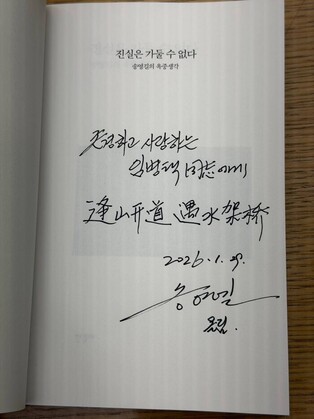 진실은 가둘 수 없다
송영길의 옥중생각
존경하고 사랑하는
임병택 同志에게
逢山开道 遇水架桥
2026. 1. 29.
송영길
드림.